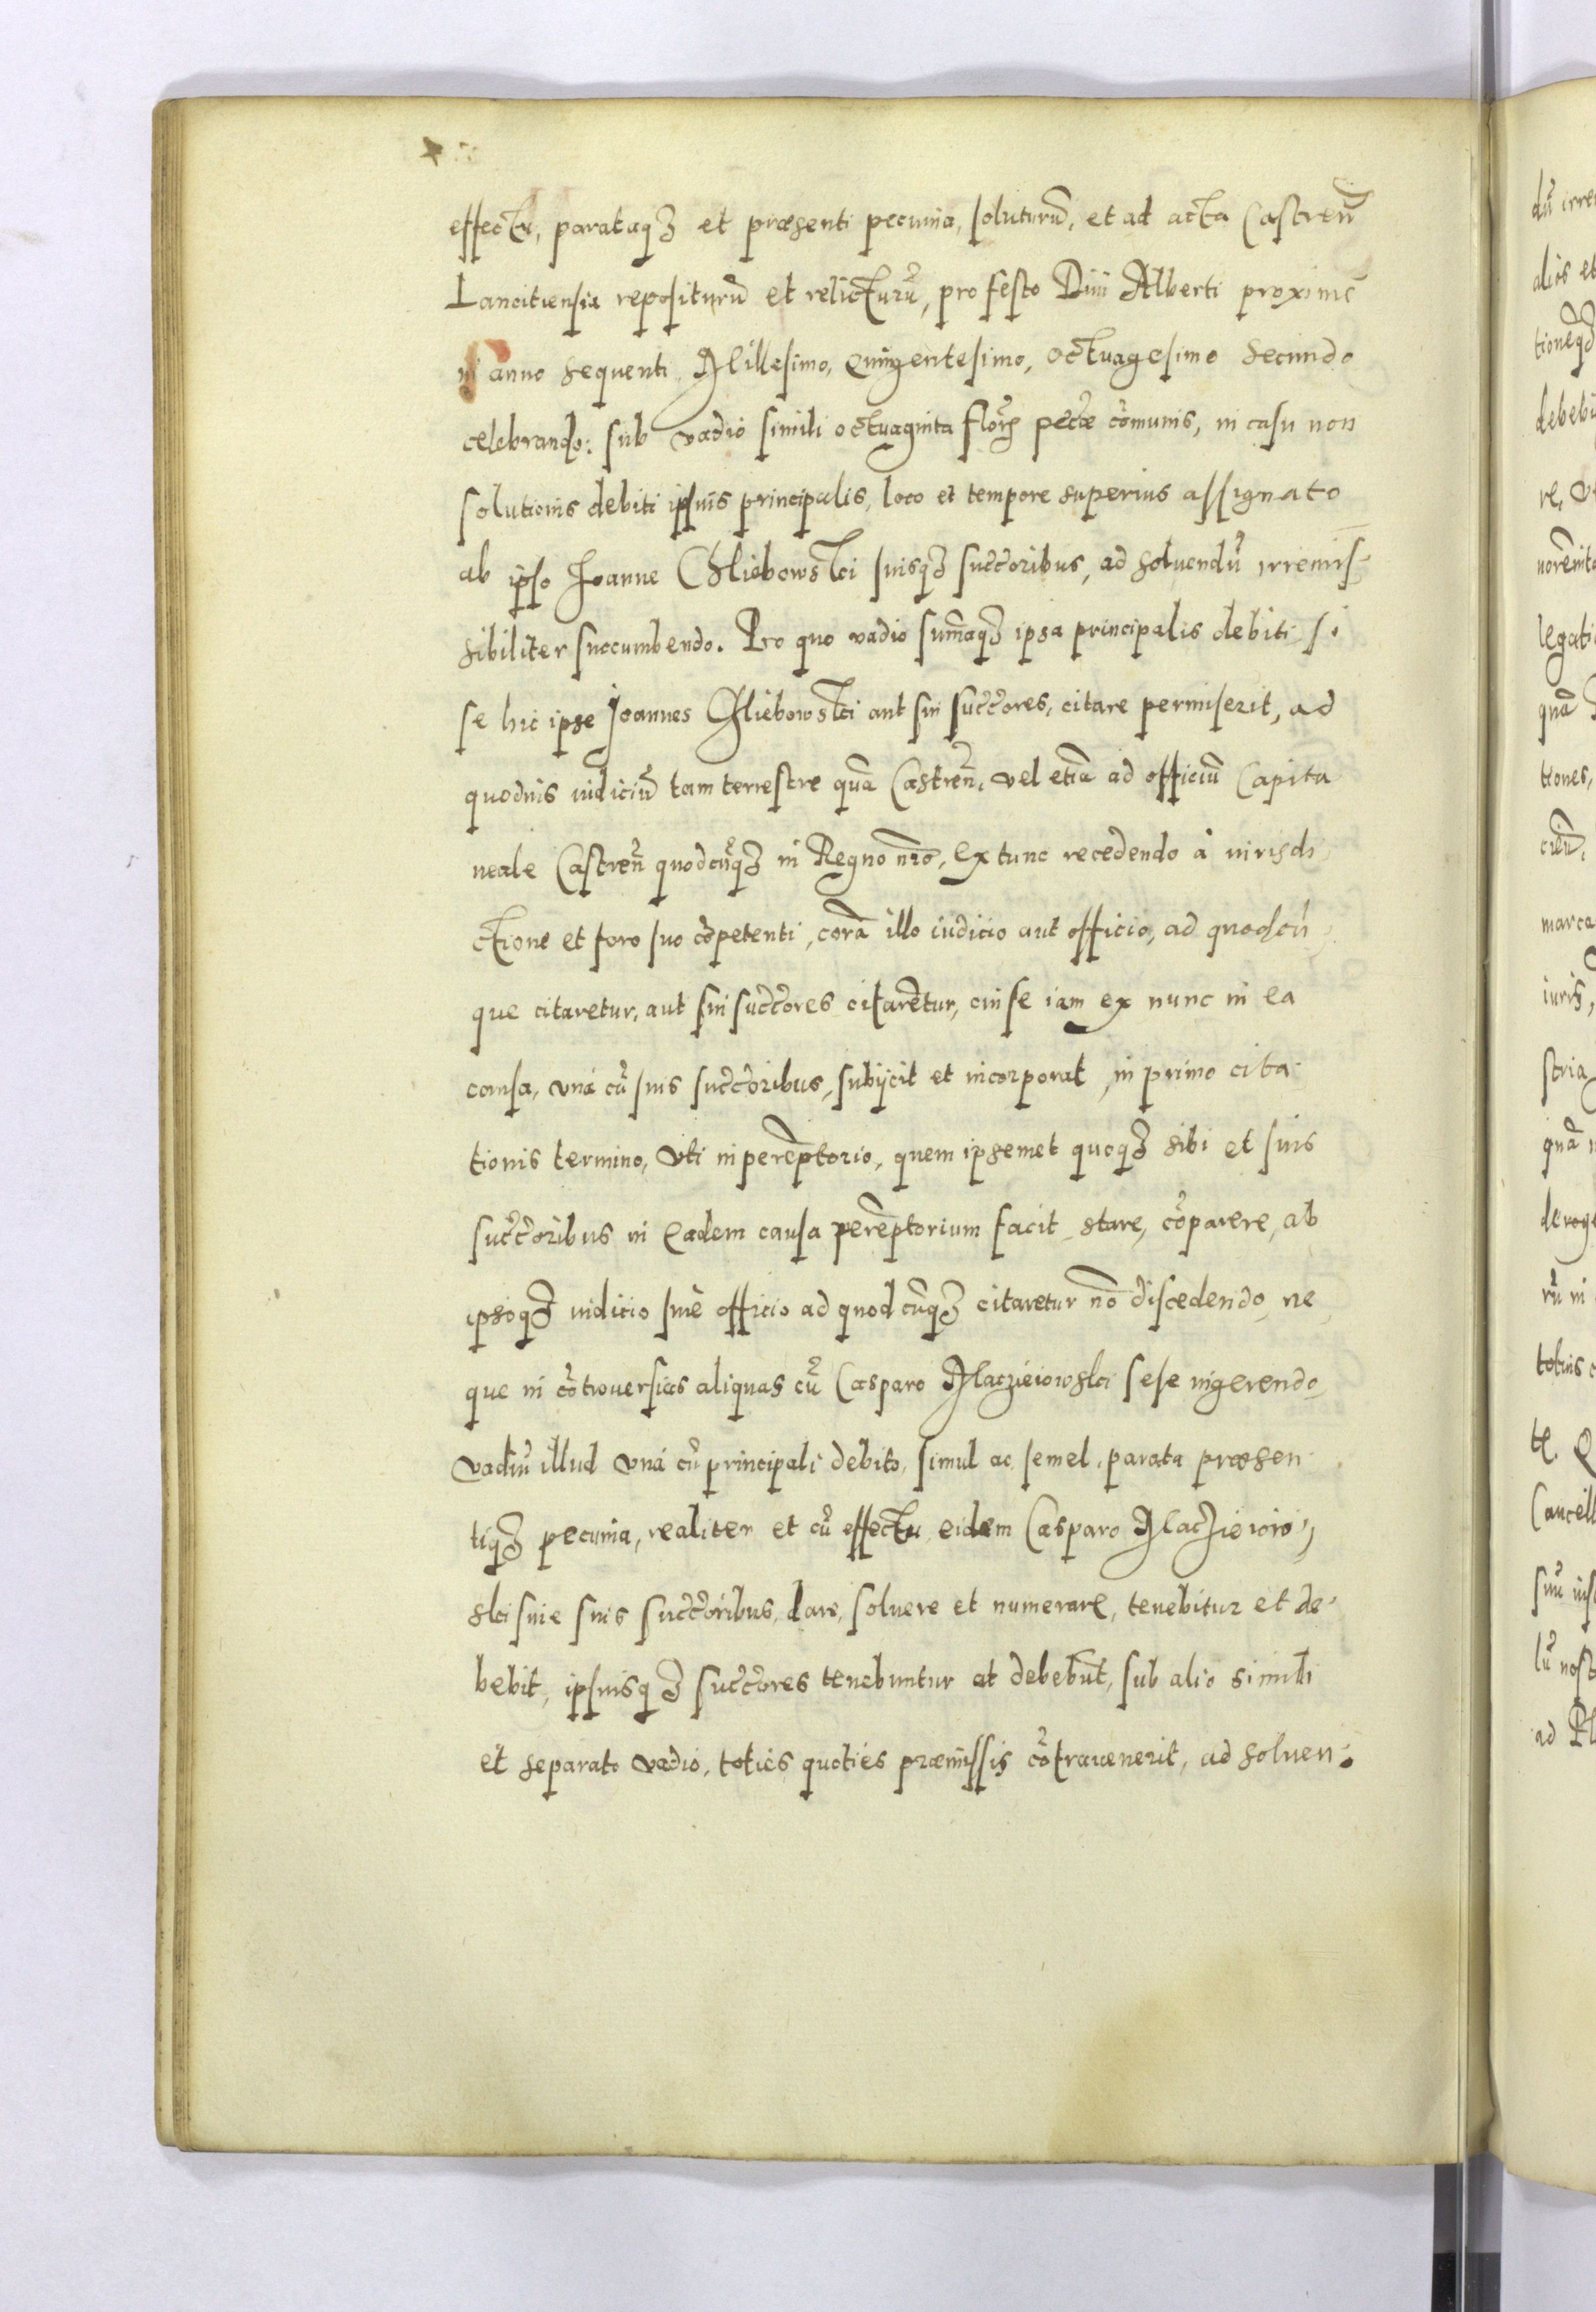 effectu, parataqȝ et præsenti pecunia, soluturũ, et ad acta Castreñ
Lancitiensia repositurũ et relicturũ, pro festo Diui Alberti proximè
in anno sequenti Millesimo, Quingentesimo, octuagesimo secundo
celebrando: sub vadio simili octuaginta floꝝ pecũæ cõmunis, in casu non
solutionis debiti ipsius principalis, loco et tempore superius assignato
ab ipso Joanne Chlebowski suisqȝ succ̃oribus, ad soluendũ irremis-
sibiliter succumbendo. Pro quo vadio sum̃aqȝ ipsa principalis debiti si
se hic ipse Joannes Chlebowski aut sui succ̃ores, citare permiserit, ad
quoduis iudiciũ tam terrestre quã Castreñ, vel etiã ad officiũ Capita
neale Castreñ quodcũqȝ in Regno nr̃o, Ex tunc recedendo à iurisdi
ctione et foro suo cõpetenti, corã illo iudicio aut officio, ad quodcũ
que citaretur, aut sui succ̃ores citarẽtur, cui se iam ex nunc in ea
causa, unà cũ suis succ̃oribus, subijcit et incorporat, in primo cita
tionis termino, vti in perẽptorio, quem ipsemet quoqȝ sibi et suis
succ̃oribus in eadem causa perẽptorium facit stare, cõparere, ab
ipsoqȝ iudicio siuè officio ad quodcũqȝ citaretur nõ discedendo, ne
que in cõtrouersias aliquas cũ Casparo Maczieiowski sese ingerendo
vadiũ illud vnà cũ principali debito, simul ac semel, parata præsen
tiqȝ pecunia, realiter et cũ effectu eidem Casparo Maczieiow,
ski siue suis succ̃oribus, dare, soluere et numerare, tenebitur et de-
bebit, ipsiusqȝ succ̃ores tenebuntur et debebũt, sub alio simili
et separato vadio, toties quoties præmissis cõtrauenerit, ad soluen.